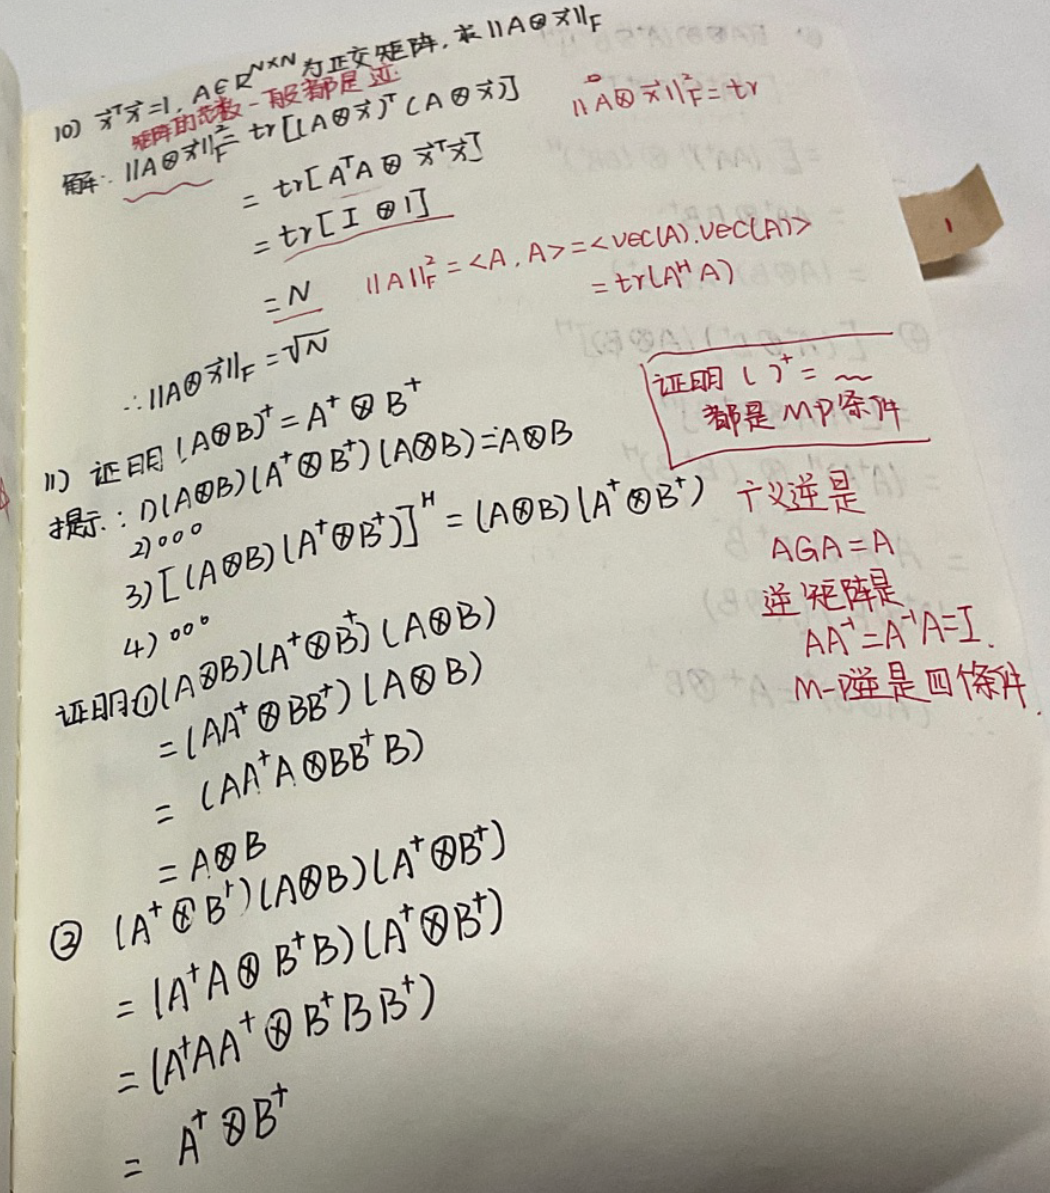 10) x⃗ᵀx⃗=1, A∈R^{N×N} 为正交矩阵, 求 ||A⊗x⃗||_F
矩阵的范数一般都是迹.
解: ||A⊗x⃗||²_F = tr[(A⊗x⃗)ᵀ(A⊗x⃗)]
||A⊗x⃗||²_F = tr
= tr[AᵀA⊗x⃗ᵀx⃗]
= tr[I⊗1]
= N
||A||²_F = <A, A> = <vec(A), vec(A)>
= tr(A^H A)
∴ ||A⊗x⃗||_F = √N
证明 ( )⁺ = ~~
都是MP条件
11) 证明 (A⊗B)⁺ = A⁺⊗B⁺
提示: 1) (A⊗B)(A⁺⊗B⁺)(A⊗B)=A⊗B
2) 。。。
3) [(A⊗B)(A⁺⊗B⁺)]^H = (A⊗B)(A⁺⊗B⁺)
4) 。。。
广义逆是
AGA=A
逆矩阵是
AA⁻¹=A⁻¹A=I.
M-P逆是四条件
证明① (A⊗B)(A⁺⊗B⁺)(A⊗B)
= (AA⁺⊗BB⁺)(A⊗B)
= (AA⁺A⊗BB⁺B)
= A⊗B
② (A⁺⊗B⁺)(A⊗B)(A⁺⊗B⁺)
= (A⁺A⊗B⁺B)(A⁺⊗B⁺)
= (A⁺AA⁺⊗B⁺BB⁺)
= A⁺⊗B⁺
1